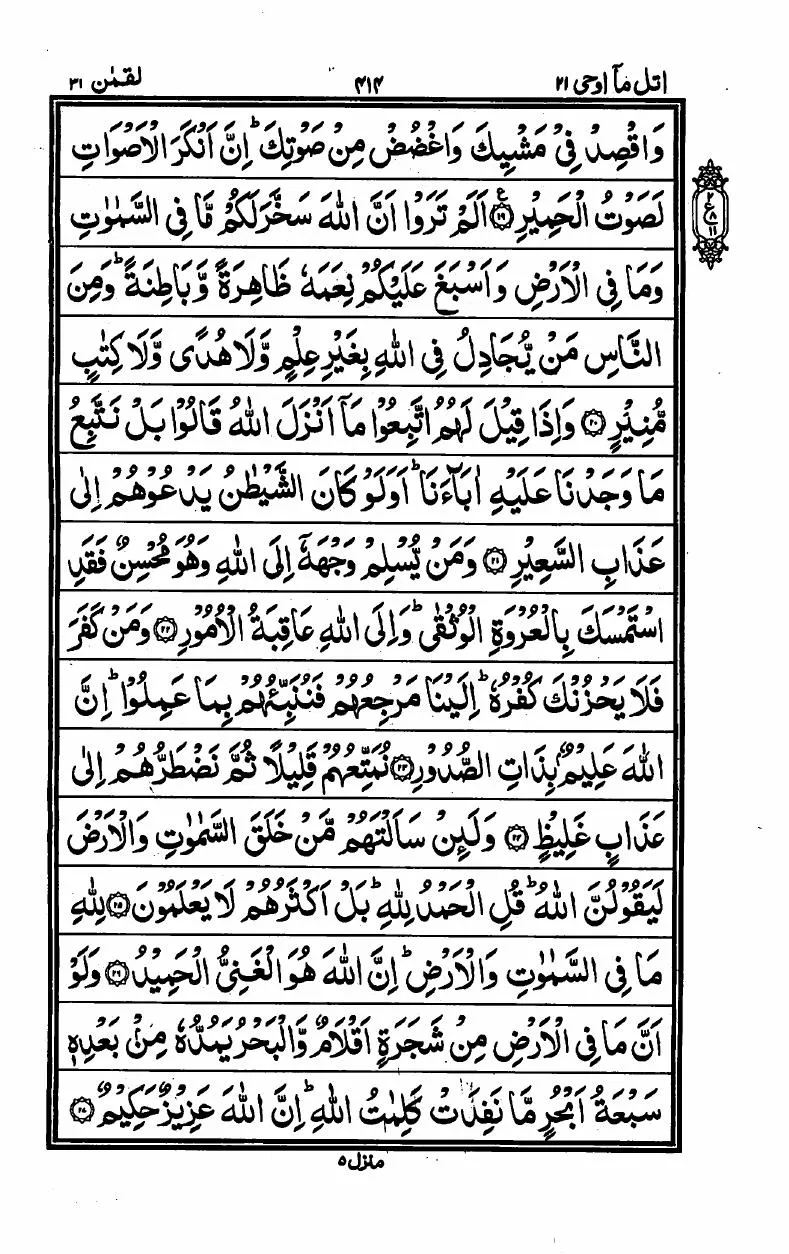 اتل مآ اوحی ۲۱ ۴۱۴ لقمٰن ۳۱
وَاقْصِدْ فِيْ مَشْيِكَ وَاغْضُضْ مِنْ صَوْتِكَ ؕ اِنَّ اَنْكَرَ الْاَصْوَاتِ
لَصَوْتُ الْحَمِيْرِ ۱۹ۧ اَلَمْ تَرَوْا اَنَّ اللّٰهَ سَخَّرَ لَكُمْ مَّا فِي السَّمٰوٰتِ
۲ ع ۸ ۱۱
وَمَا فِي الْاَرْضِ وَاَسْبَغَ عَلَيْكُمْ نِعَمَهٗ ظَاهِرَةً وَّبَاطِنَةً ؕ وَمِنَ
النَّاسِ مَنْ يُّجَادِلُ فِي اللّٰهِ بِغَيْرِ عِلْمٍ وَّلَا هُدًى وَّلَا كِتٰبٍ
مُّنِيْرٍ ۲۰ وَاِذَا قِيْلَ لَهُمُ اتَّبِعُوْا مَاۤ اَنْزَلَ اللّٰهُ قَالُوْا بَلْ نَتَّبِعُ
مَا وَجَدْنَا عَلَيْهِ اٰبَآءَنَا ؕ اَوَلَوْ كَانَ الشَّيْطٰنُ يَدْعُوْهُمْ اِلٰى
عَذَابِ السَّعِيْرِ ۲۱ وَمَنْ يُّسْلِمْ وَجْهَهٗۤ اِلَى اللّٰهِ وَهُوَ مُحْسِنٌ فَقَدِ
اسْتَمْسَكَ بِالْعُرْوَةِ الْوُثْقٰى ؕ وَاِلَى اللّٰهِ عَاقِبَةُ الْاُمُوْرِ ۲۲ وَمَنْ كَفَرَ
فَلَا يَحْزُنْكَ كُفْرُهٗ ؕ اِلَيْنَا مَرْجِعُهُمْ فَنُنَبِّئُهُمْ بِمَا عَمِلُوْا ؕ اِنَّ
اللّٰهَ عَلِيْمٌۢ بِذَاتِ الصُّدُوْرِ ۲۳ نُمَتِّعُهُمْ قَلِيْلًا ثُمَّ نَضْطَرُّهُمْ اِلٰى
عَذَابٍ غَلِيْظٍ ۲۴ وَلَئِنْ سَاَلْتَهُمْ مَّنْ خَلَقَ السَّمٰوٰتِ وَالْاَرْضَ
لَيَقُوْلُنَّ اللّٰهُ ؕ قُلِ الْحَمْدُ لِلّٰهِ ؕ بَلْ اَكْثَرُهُمْ لَا يَعْلَمُوْنَ ۲۵ لِلّٰهِ
مَا فِي السَّمٰوٰتِ وَالْاَرْضِ ؕ اِنَّ اللّٰهَ هُوَ الْغَنِيُّ الْحَمِيْدُ ۲۶ وَلَوْ
اَنَّ مَا فِي الْاَرْضِ مِنْ شَجَرَةٍ اَقْلَامٌ وَّالْبَحْرُ يَمُدُّهٗ مِنْۢ بَعْدِهٖ
سَبْعَةُ اَبْحُرٍ مَّا نَفِدَتْ كَلِمٰتُ اللّٰهِ ؕ اِنَّ اللّٰهَ عَزِيْزٌ حَكِيْمٌ ۲۷
منزل ۵